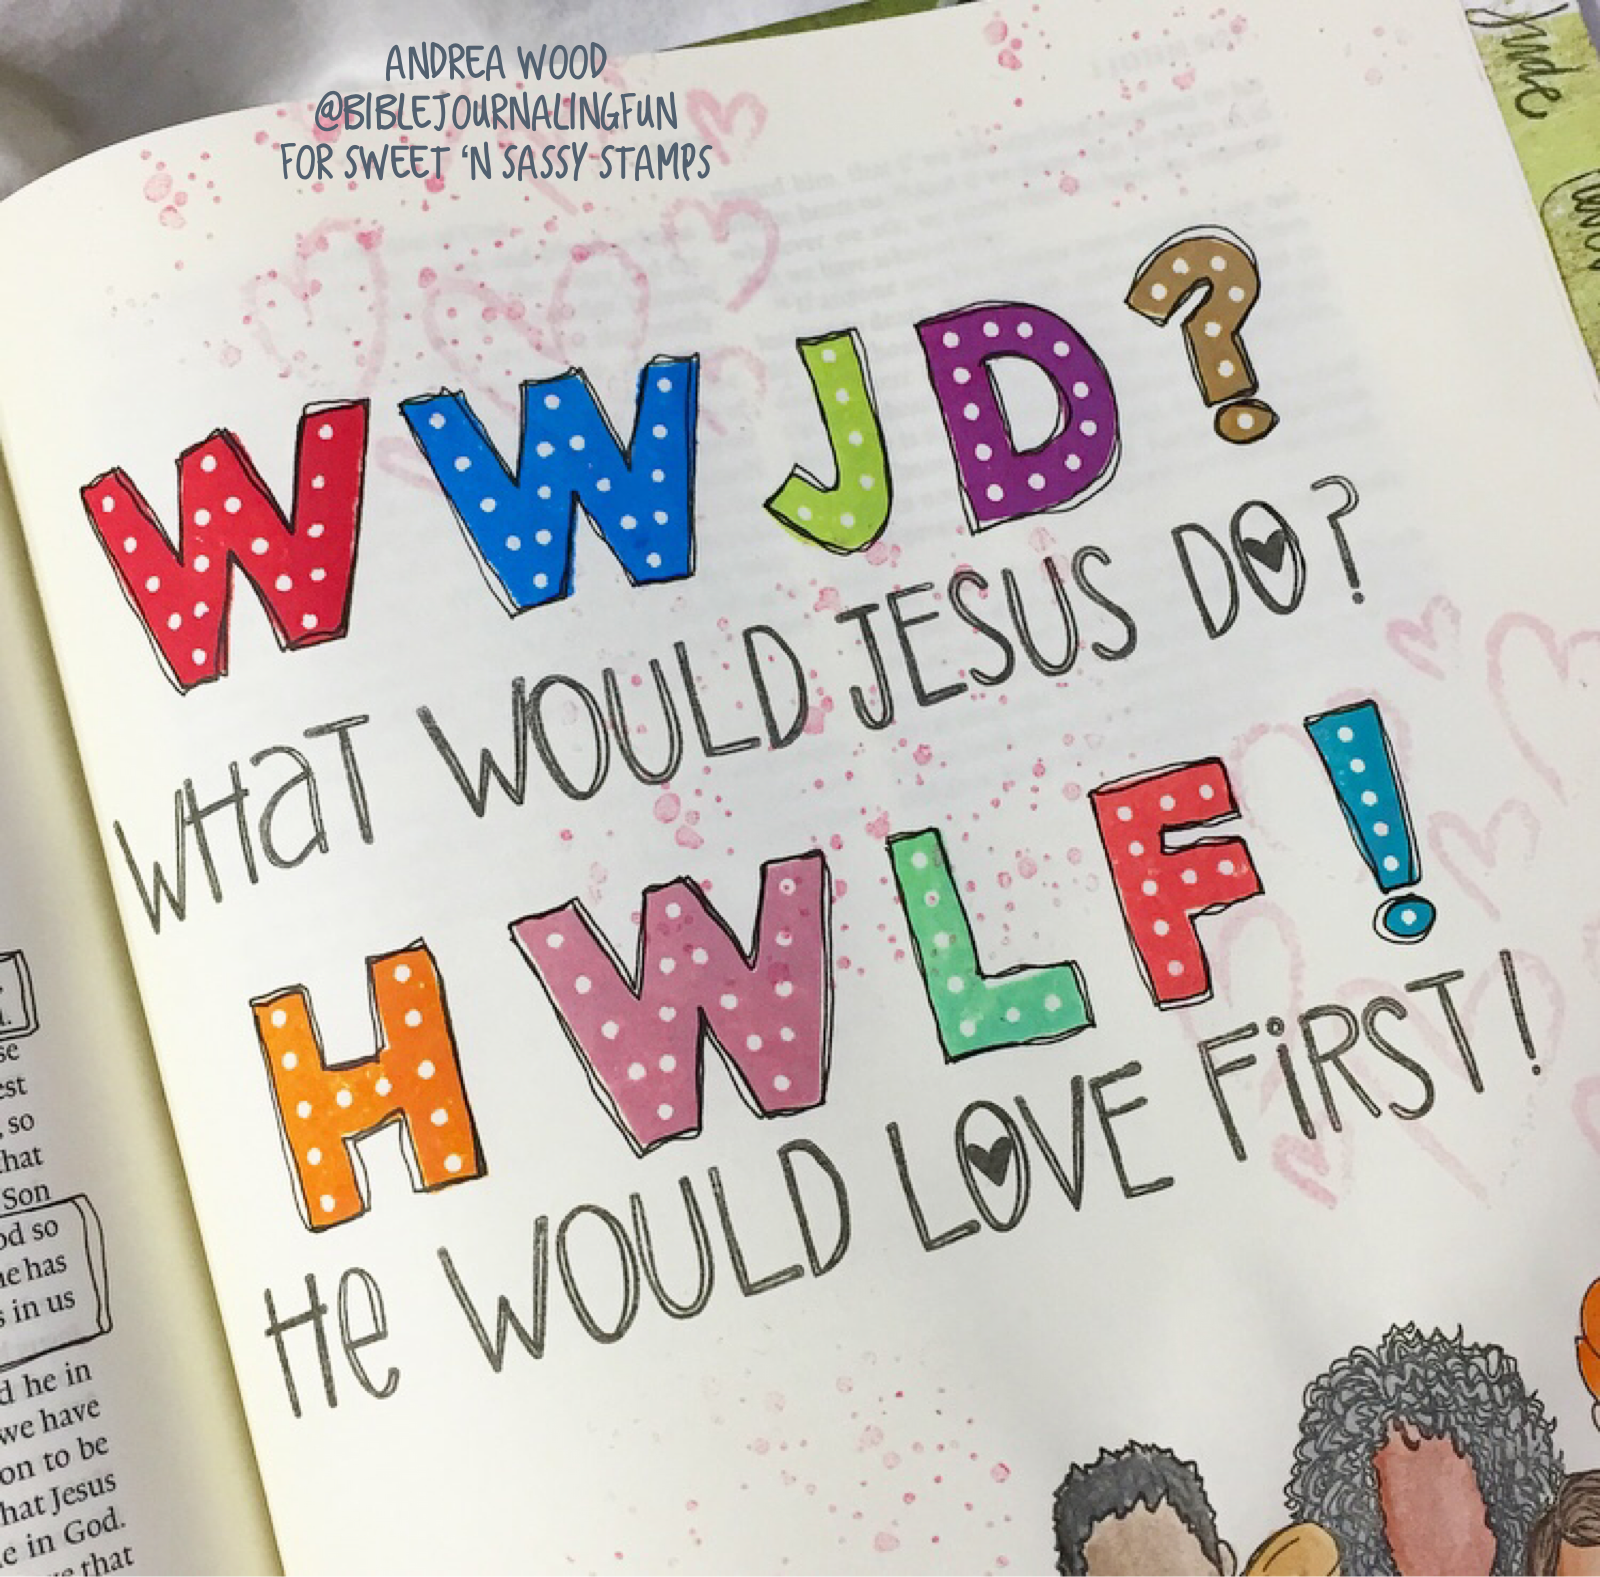 ANDREA WOOD
@BIBLEJOURNALINGFUN
FOR SWEET ‘N SASSY STAMPS
Jude
WWJD?
WHaT WOULD JESUS DO?
HWLF!
He WOULD LOVE FiRST!
se
est
, so
that
Son
od so
he has
s in us
d he in
we have
on to be
hat Jesus
e in God.
that